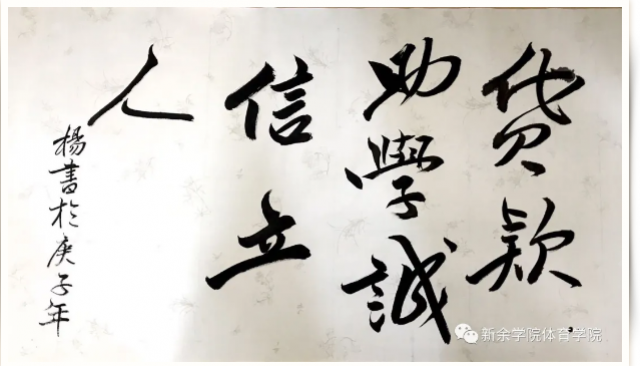 貸款
助學誠
信立
人
楊書於庚子年
新余学院体育学院